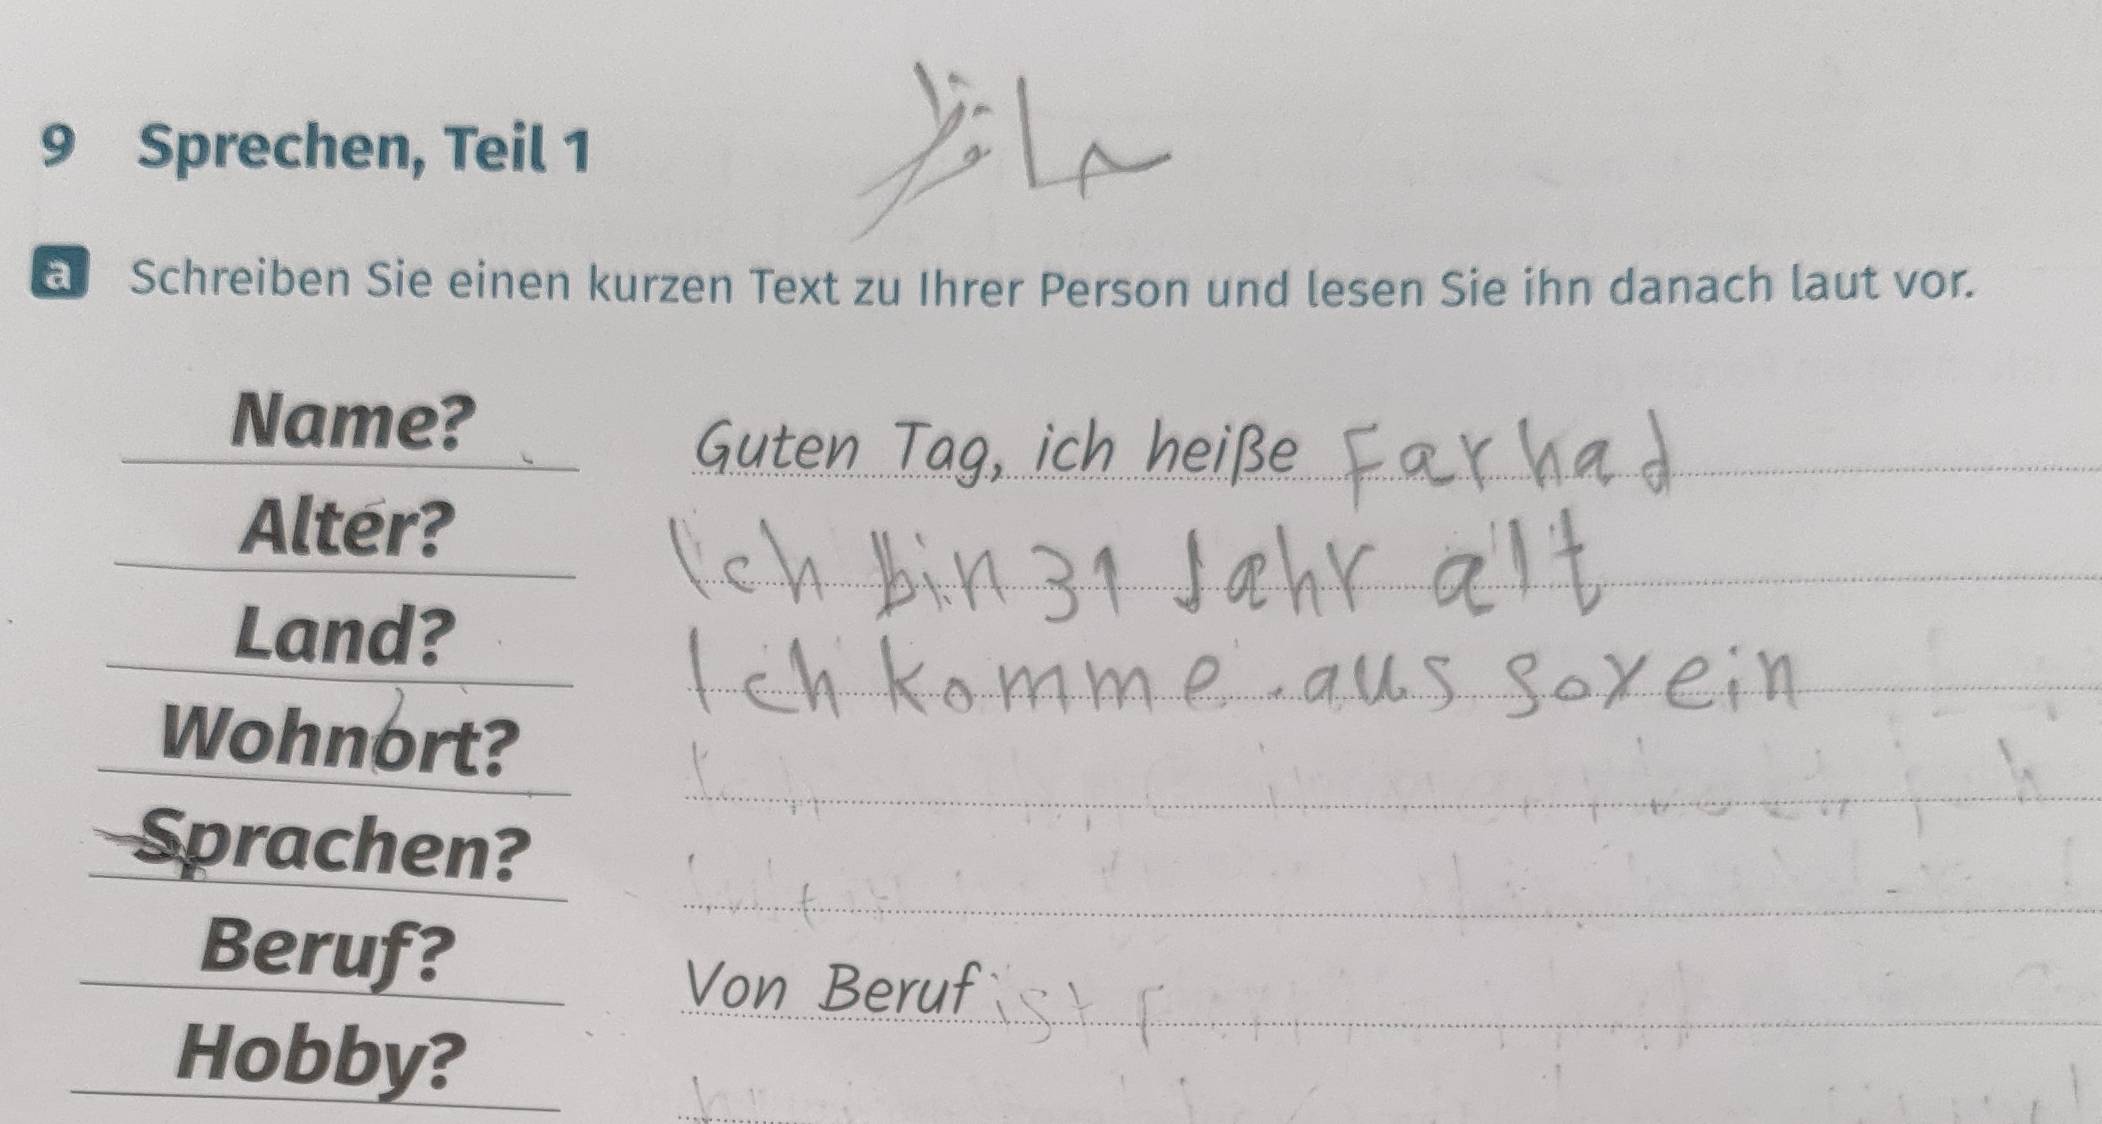 9 Sprechen, Teil 1
a Schreiben Sie einen kurzen Text zu Ihrer Person und lesen Sie ihn danach laut vor.
Name? Guten Tag, ich heiße Farhad
Alter? Ich bin 31 Jahr alt
Land? Ich komme aus sorein
Wohnort?
Sprachen?
Beruf? Von Beruf ist
Hobby?